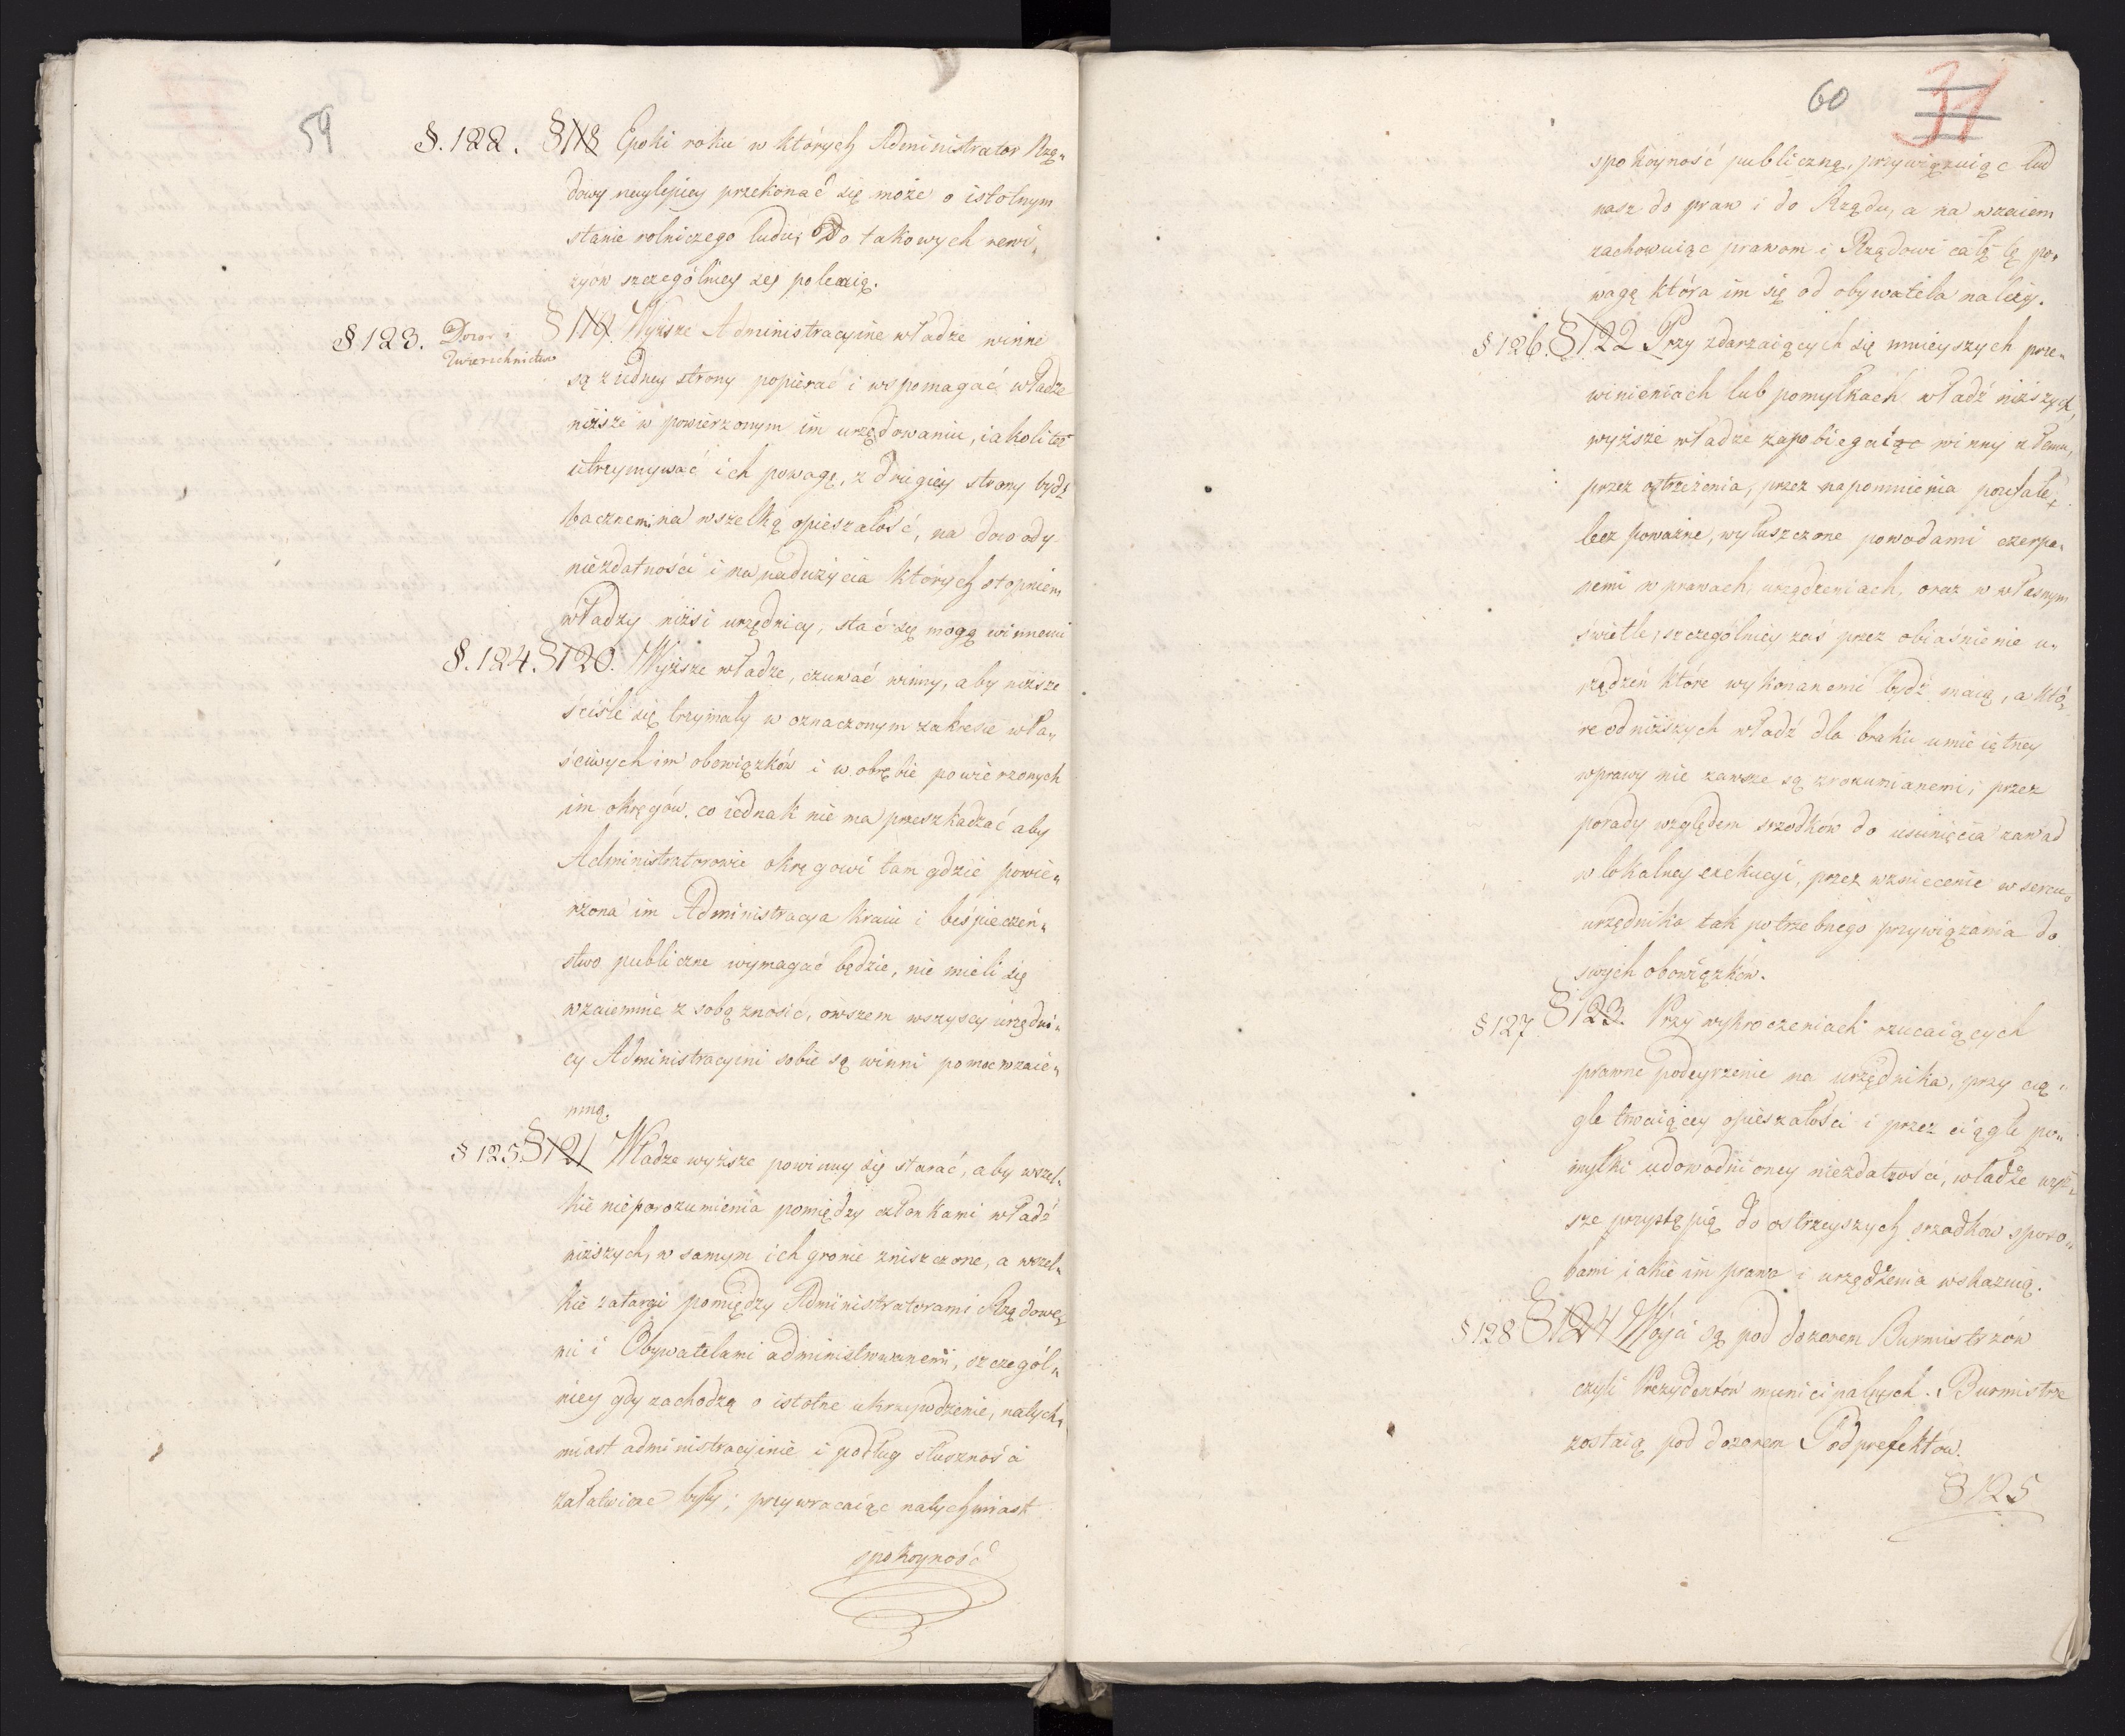 59
§. 122. §118 Epoki roku w których Administrator Rzą„
dowy naylepiey przekonać się może o istotnym
stanie rolniczego ludu, Do takowych rewi„
zyów szczególniey się polecaią.
§ 123. Dozor i §119. Wyższe Administracyine władze winni
Zwierzchnictwo
są z iedney strony popierać i wspomagać władze
niższe w powierzonym im urzędowaniu, iakoli też
utrzymywać ich powagę, z drugiey strony bydź
bacznemi na wszelką opieszałość, na dowody
niezdatności i na nadużycia których stopniem
władzy niżsi urzędnicy, stać się mogą winnemi
§. 124. §120. Wyższe władze, czuwać winny, aby niższe
ściśle się trzymały w oznaczonym zakresie wła„
ściwych im obowiązków i w obrębie powierzonych
im okręgów. co iednak nie ma przeszkadzać aby
Administratorowie okręgowi tam gdzie powie„
rzona im Administracya kraiu i bespieczeń„
stwo publiczne wymagać będzie, nie mieli się
wzaiemnie z sobą znosić, owszem wszyscy urzędni„
cy Administracyini sobie są winni pomoc wzaie„
mną.
§ 125. §121 Władze wyższe powinny się starać, aby wszel„
kie nieporozumienia pomiędzy członkami władz
niższych, w samym ich gronie zniszczone, a wszel„
kie zatargi pomiędzy Administratorami Rządowe„
mi i Obywatelami administrowanemi, szczegól„
niey gdy zachodzą o istotne ukrzywdzenie, natych„
miast administracyinie i podług słuszności
załatwione były; przywracaiąc natychmiast
spokoyność
60 31
spokoyność publiczną, przywiązuiąc lud
nasz do praw i do Rządu, a na wzaiem
zachowuiąc prawom i Rządowi całą tę po„
wagę która im się od obywatela należy.
§ 126. §122 Przy zdarzaiących się mnieyszych prze„
winieniach lub pomyłkach władz niższych,
wyższe władze zapobiegaiąc winny złemu,
przez ostrzeżenia, przez napomnienia poufałe,
lecz poważne, wyłuszczone powodami czerpa„
nemi w prawach, urządzeniach, oraz w własnym
świetle, szczególniey zaś przez obiaśnienie u„
rządzeń które wykonanemi bydź maią, a któ„
re od niższych władz dla braku umieiętney
wprawy nie zawsze są zrozumianemi; przez
porady względem srzodków do usunięcia zawad
w lokalney exekucyi, przez wzniecenie w sercu
urzędnika tak potrzebnego przywiązania do
swych obowiązków.
§ 127 §123. Przy wykroczeniach rzucaiących
prawne podeyrzenie na urzędnika, przy cią„
gle trwaiącey opieszałości i przez ciągłe po„
myłki udowodnioney niezdatności, władze wyż„
sze przystąpią do ostrzeyszych srzodków sposo„
bami iakie im prawa i urządzenia wskazuią.
§ 128 §124 Wóyci są pod dozorem Burmistrzów
czyli Prezydentów municipalnych. Burmistrze
zostaią pod dozorem Podprefektów.
§ 125